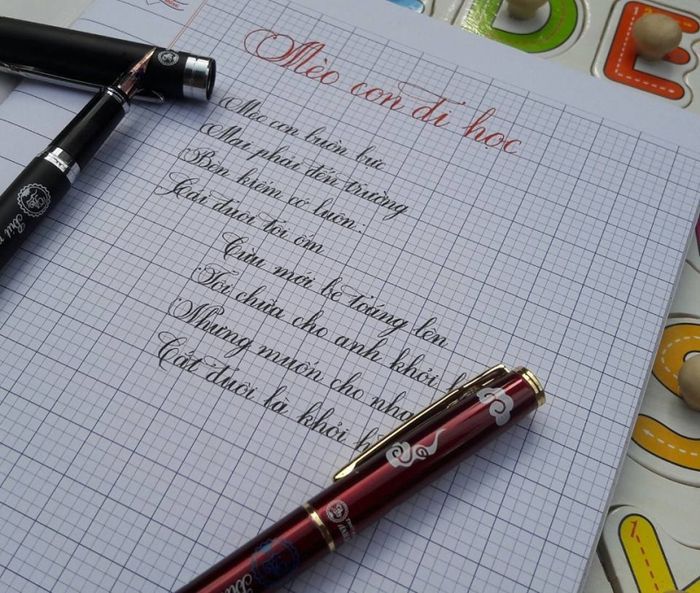 Mèo con đi học
Mèo con buồn bực
Mai phải đến trường
Bèn kiếm cớ luôn:
Cái đuôi tôi ốm
Cừu mới be toáng lên
Tôi chữa cho anh khỏi
Nhưng muốn cho nha
Cắt đuôi là khỏi h
Bút